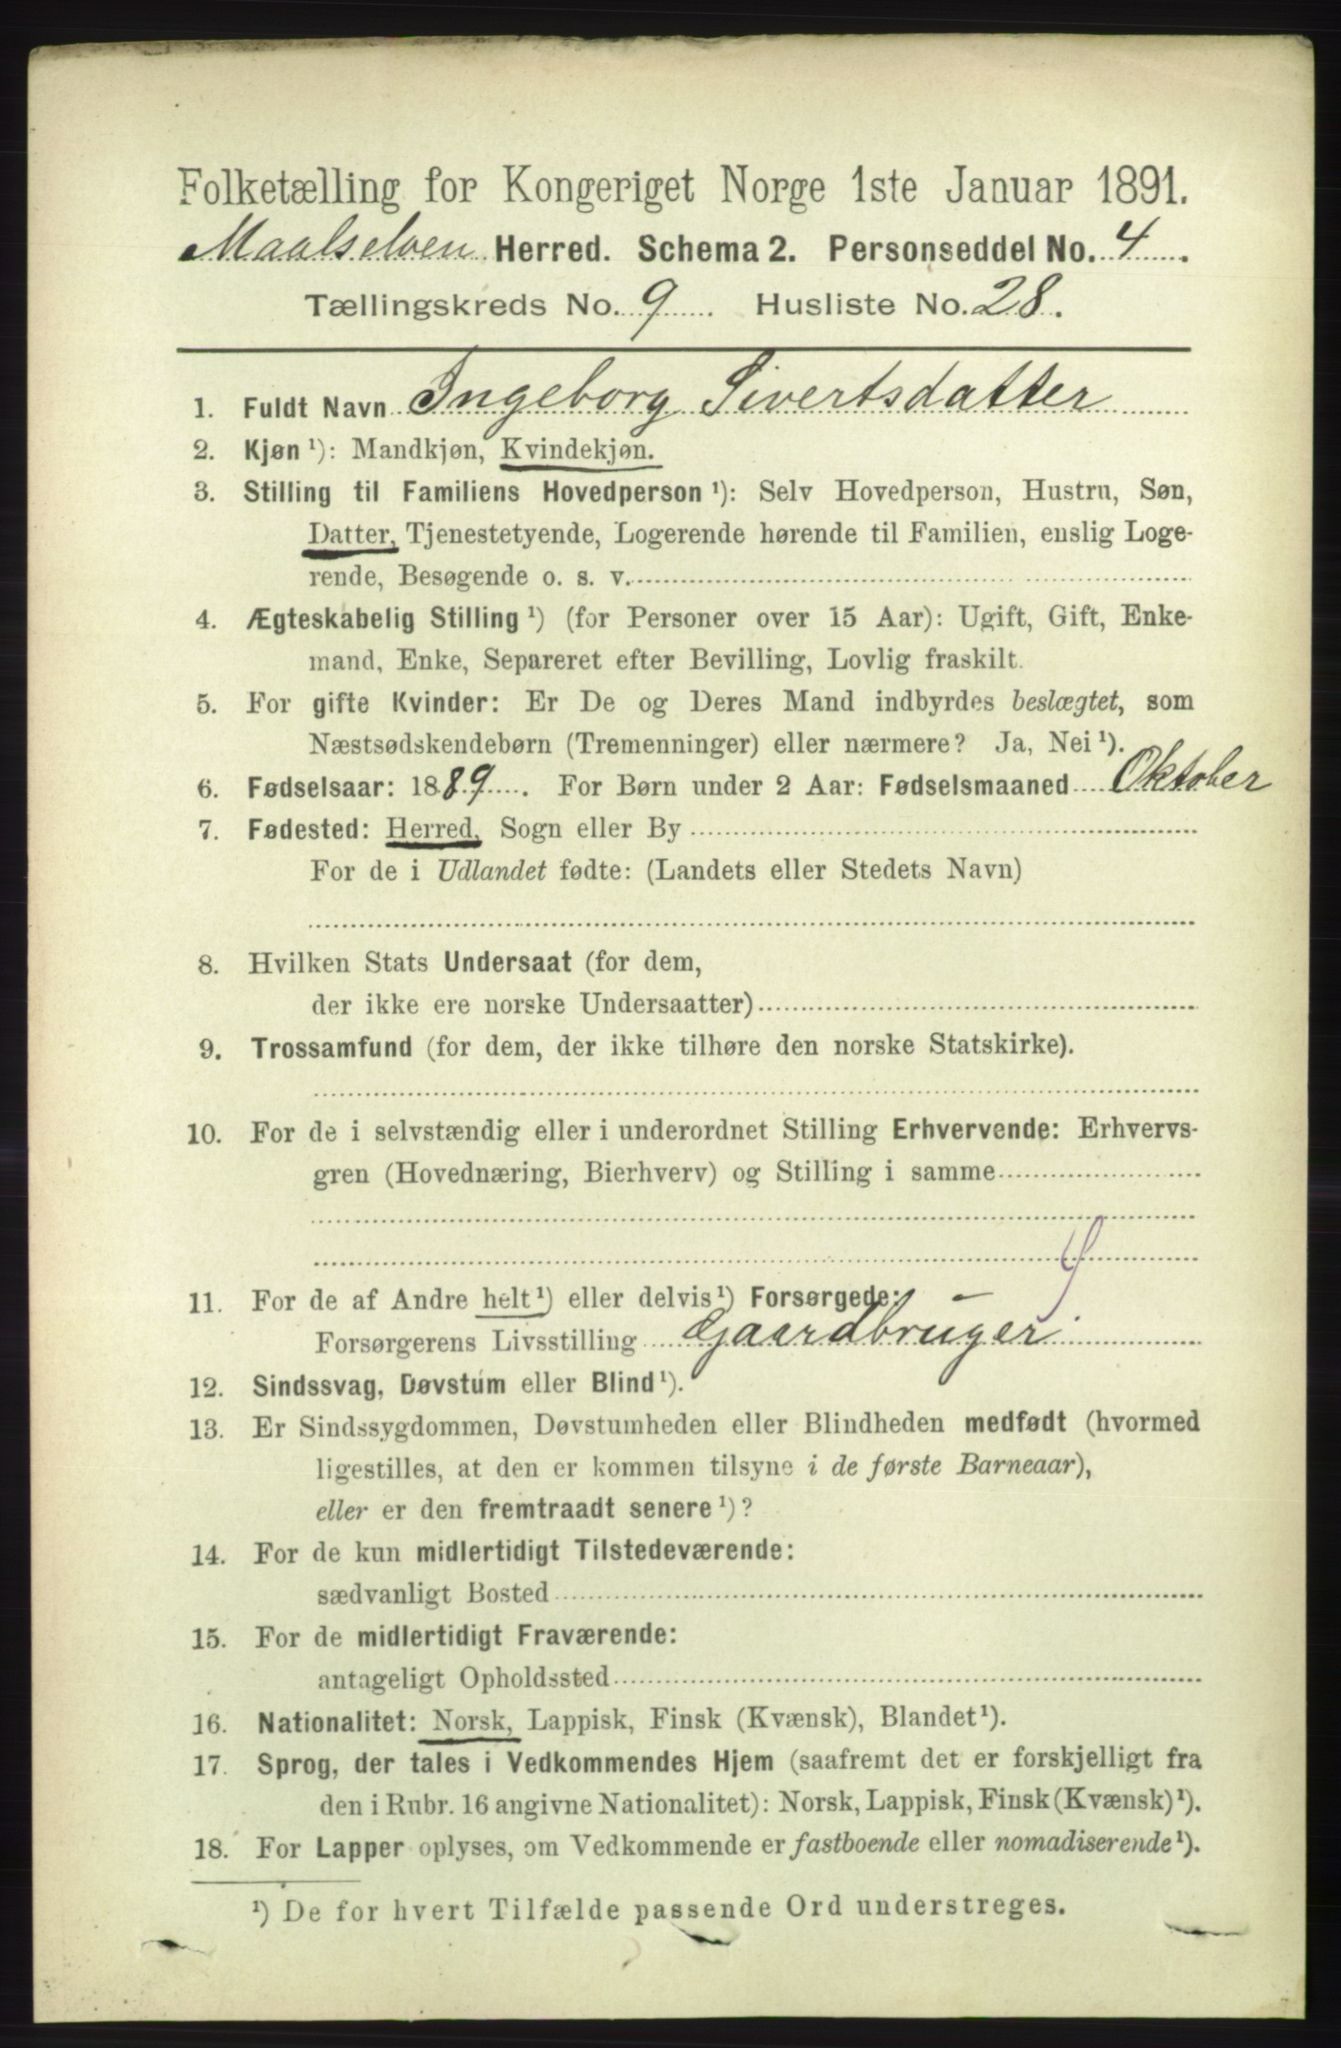 Folketælling for Kongeriget Norge 1ste Januar 1891.
Maalselven Herred. Schema 2. Personseddel No. 4.
Tællingskreds No. 9. Husliste No. 28.
1. Fuldt Navn Ingeborg Sivertsdatter
2. Kjøn ¹): Mandkjøn, Kvindekjøn.
3. Stilling til Familiens Hovedperson ¹): Selv Hovedperson, Hustru, Søn,
Datter, Tjenestetyende, Logerende hørende til Familien, enslig Loge-
rende, Besøgende o. s. v.
4. Ægteskabelig Stilling ¹) (for Personer over 15 Aar): Ugift, Gift, Enke-
mand, Enke, Separeret efter Bevilling, Lovlig fraskilt.
5. For gifte Kvinder: Er De og Deres Mand indbyrdes beslægtet, som
Næstsødskendebørn (Tremenninger) eller nærmere? Ja, Nei ¹).
6. Fødselsaar: 1889. For Børn under 2 Aar: Fødselsmaaned Oktober
7. Fødested: Herred, Sogn eller By
For de i Udlandet fødte: (Landets eller Stedets Navn)
8. Hvilken Stats Undersaat (for dem,
der ikke ere norske Undersaatter)
9. Trossamfund (for dem, der ikke tilhøre den norske Statskirke).
10. For de i selvstændig eller i underordnet Stilling Erhvervende: Erhvervs-
gren (Hovednæring, Bierhverv) og Stilling i samme
11. For de af Andre helt ¹) eller delvis ¹) Forsørgede:
Forsørgerens Livsstilling Gaardbruger
12. Sindssvag, Døvstum eller Blind ¹).
13. Er Sindssygdommen, Døvstumheden eller Blindheden medfødt (hvormed
ligestilles, at den er kommen tilsyne i de første Barneaar),
eller er den fremtraadt senere ¹)?
14. For de kun midlertidigt Tilstedeværende:
sædvanligt Bosted
15. For de midlertidigt Fraværende:
antageligt Opholdssted
16. Nationalitet: Norsk, Lappisk, Finsk (Kvænsk), Blandet ¹).
17. Sprog, der tales i Vedkommendes Hjem (saafremt det er forskjelligt fra
den i Rubr. 16 angivne Nationalitet): Norsk, Lappisk, Finsk (Kvænsk) ¹).
18. For Lapper oplyses, om Vedkommende er fastboende eller nomadiserende ¹).
¹) De for hvert Tilfælde passende Ord understreges.